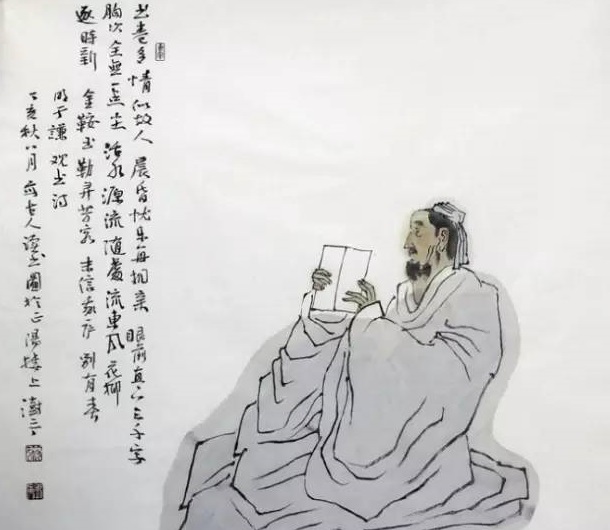 书卷多情似故人 晨昏忧乐每相亲 眼前直下三千字
胸次全無一点尘 活水源流随處流 東風花柳
逐時新 金鞍玉勒寻芳客 未信我庐别有春
明于謙观书诗
丁亥秋八月 古人读书圖於正陽楼上